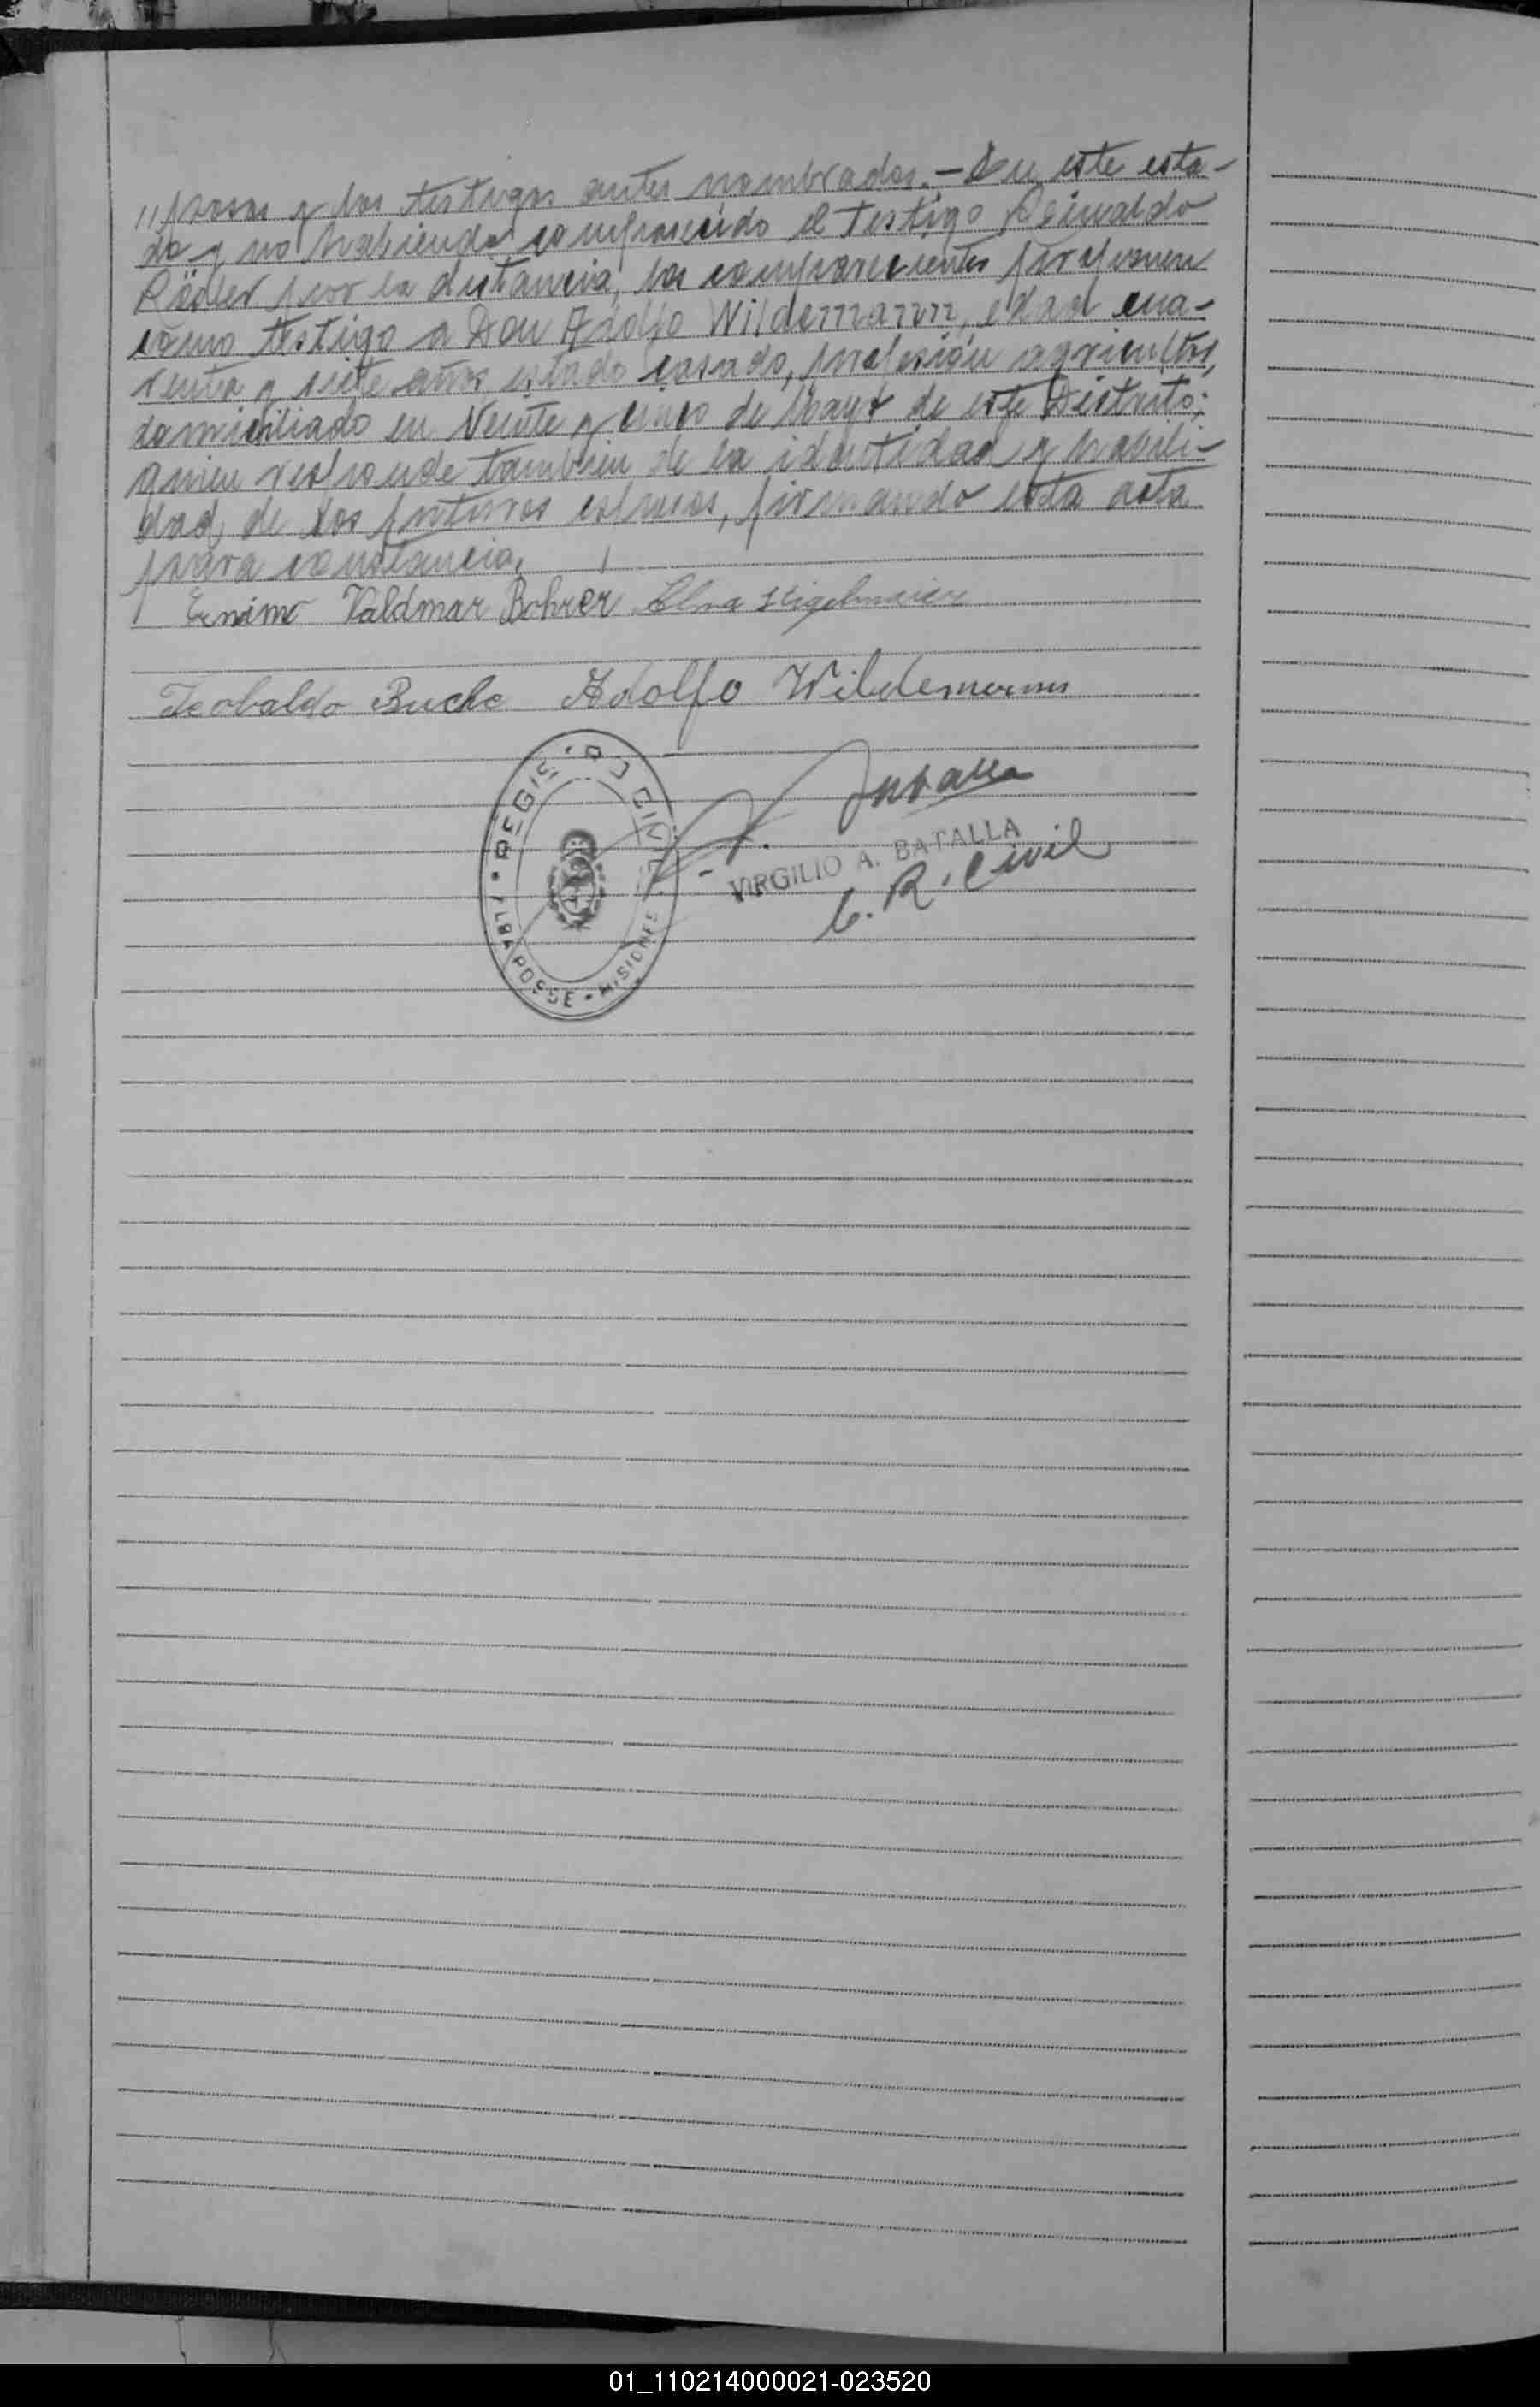 //posos y los testigos antes nombrados.- En este esta-
do y no habiendo comparecido el testigo Reinaldo
Rädler por la distancia, los comparecientes proponen
como testigo a Don Adolfo Wildemann, edad cua-
renta y siete años, estado casado, profesión agricultor,
domiciliado en Veinte y cinco de Mayo de este Distrito;
quien responde también de la identidad y habili-
dad de los futuros esposos, firmando esta acta
para constancia.
Valdmar Bohrer Elna
Teobaldo Buche Adolfo Wildemann
REGISTRO CIVIL
ALBA POSSE • MISIONES
VIRGILIO A. BATALLA
R. Civil
01_110214000021-023520